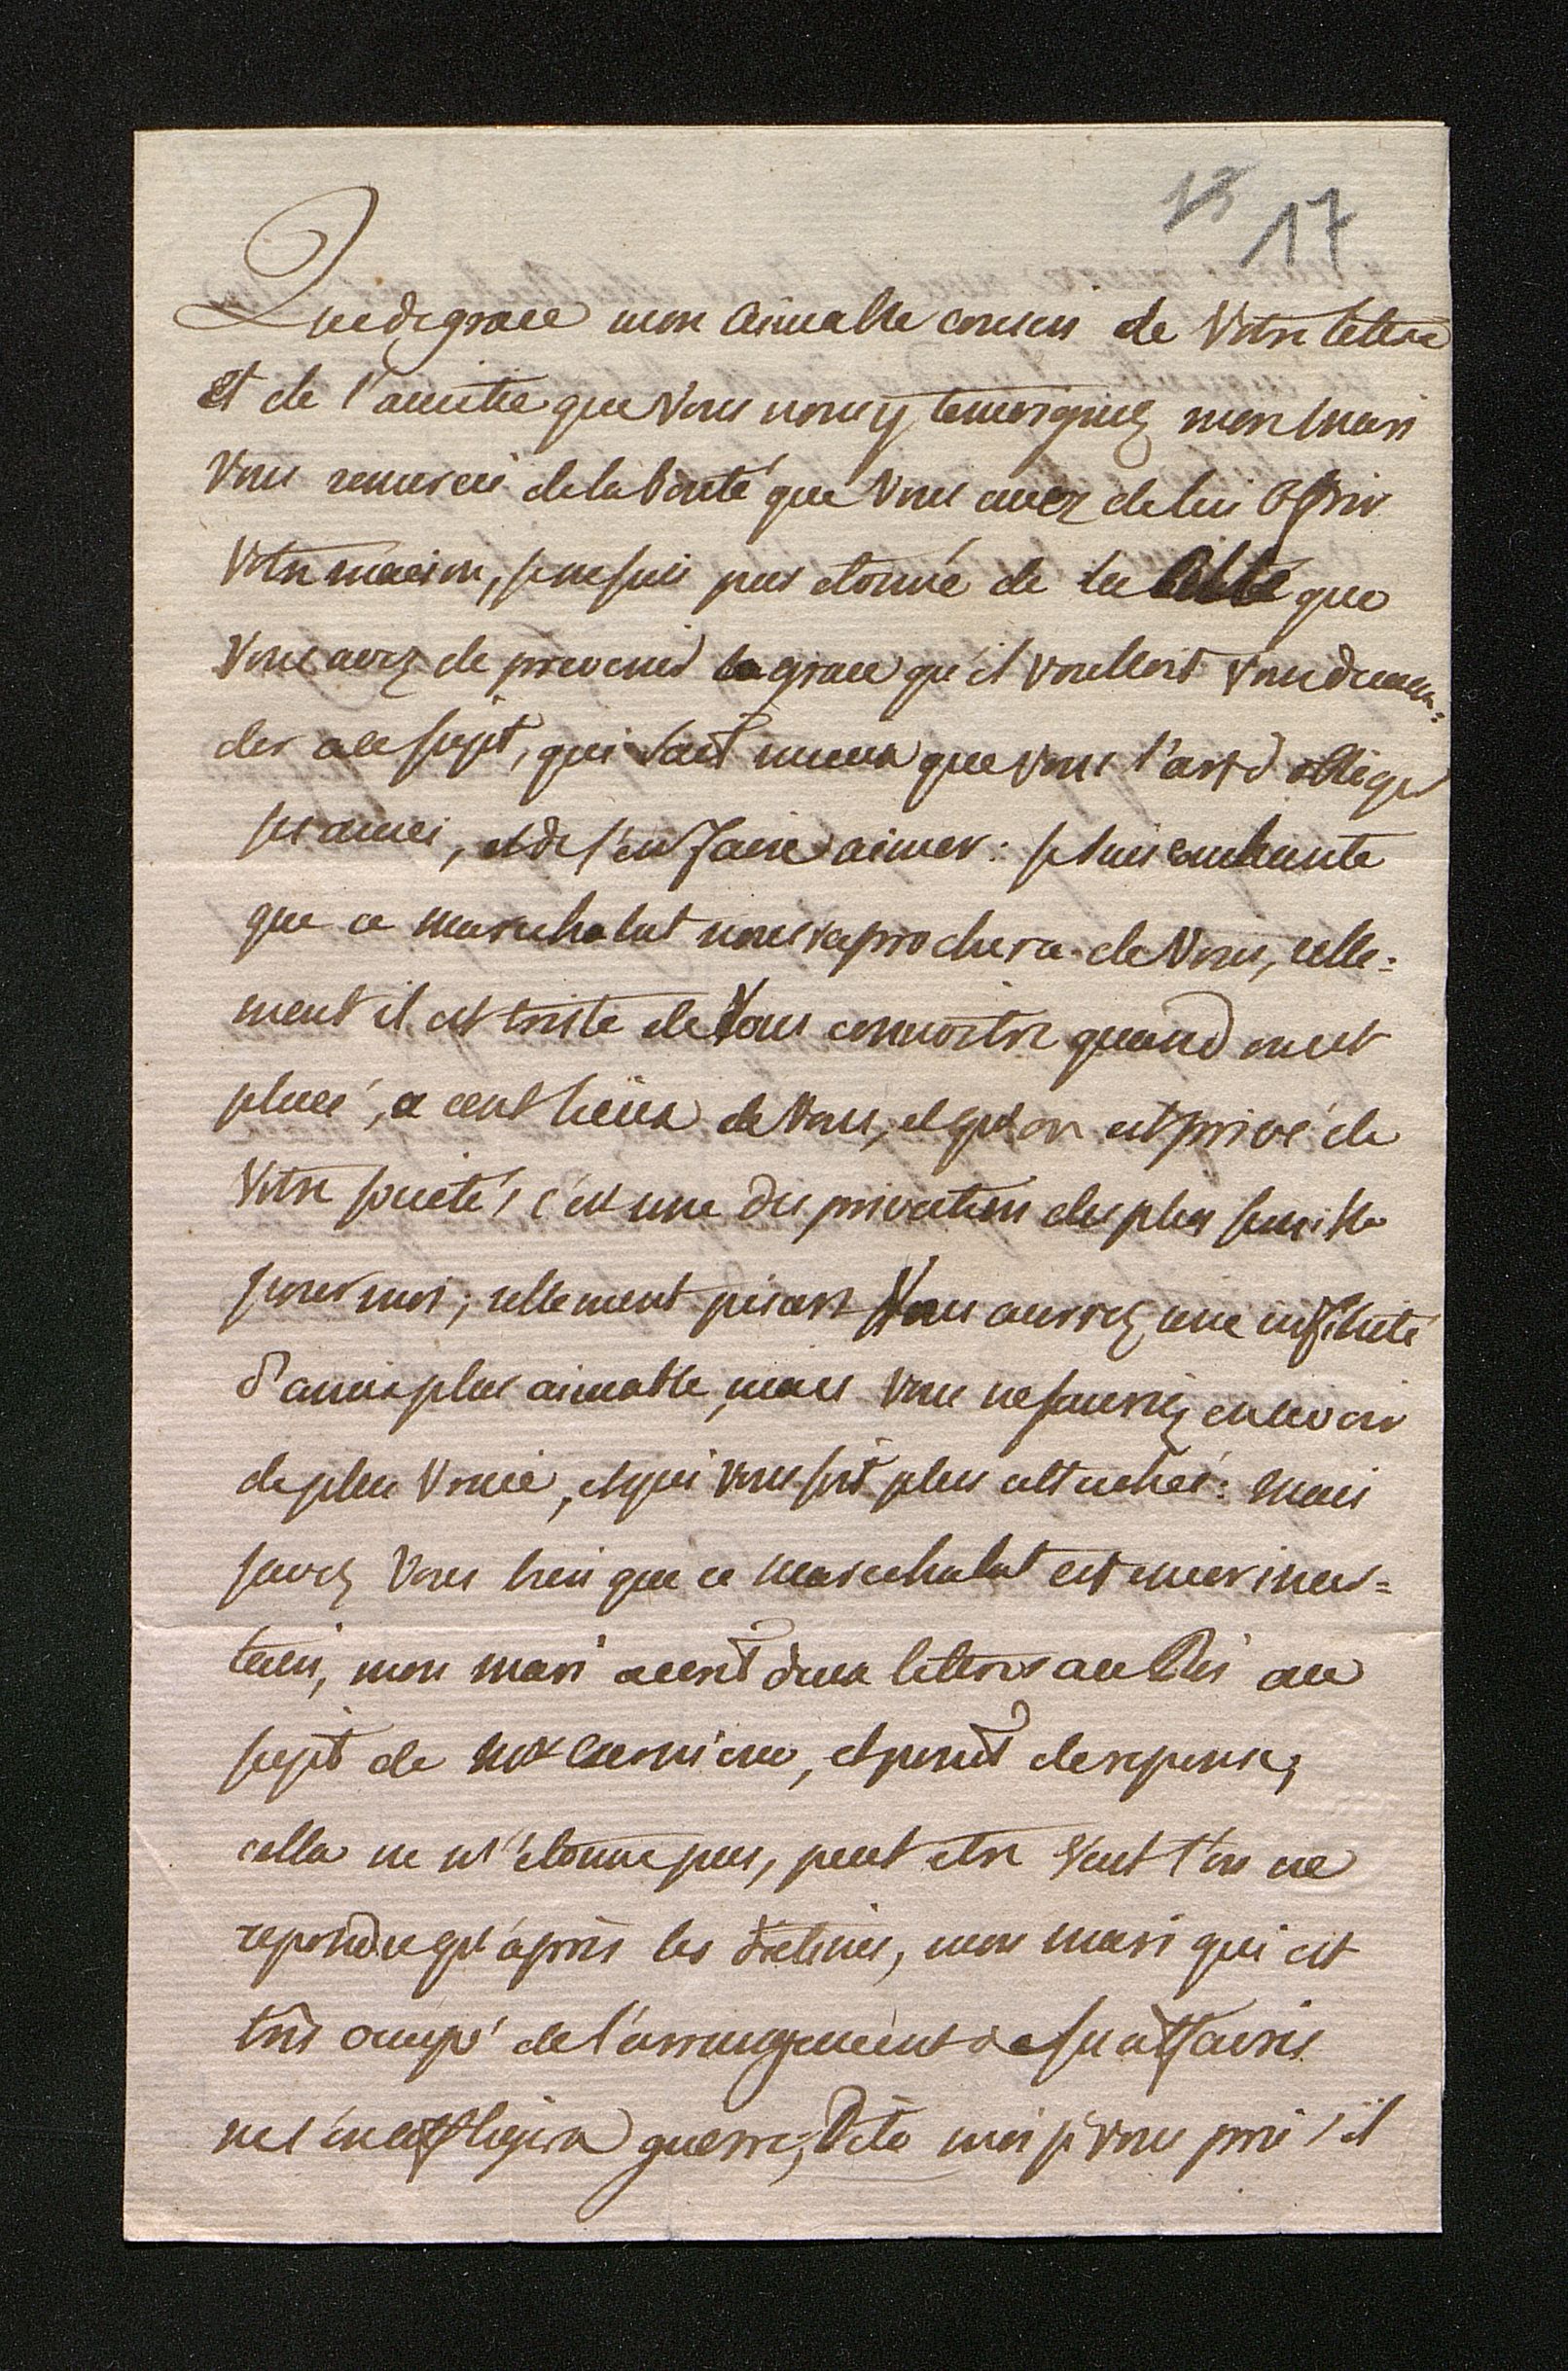 13 17
Que de grace mon aimable cousin de Votre lettre
et de l'amitie que Vous nous y temoignez mon mari
Vous remercie de la bonté que Vous avez de lui offrir
Votre maison, je ne suis pas etonné de la que
Vous avez de prevenir la grace qu'il voulloit vous deman=
der a ce sujet, qui sait mieux que vous l'art d'obliger
ses amis, et de s'en faire aimer : je suis enchante
que ce marechalat nous raprochera de Vous, relle=
ment il est triste de Vous connoitre quand on est
placé, a cent lieües de Vous, et qu'on est privé de
Votre societé, c'est une des privations des plus sensible
pour moi ; rellement Vous aurrez une infinité
d'amis plus aimable, mais vous ne sauriez en avoir
de plus vraie, et qui vous soit plus attachée : mais
savez Vous bien que ce marechalat est encor incer=
tain, mon mari a ecrit deux lettres au Roi au
sujet de et point de reponse,
cella ne m'étonne pas, peut etre veut l'on ne
repondre qu'après les mon mari qui est
très occupé de l'arrangement de ses affaires
ne s'en affligera guerre, Dite moi je vous prie s'il